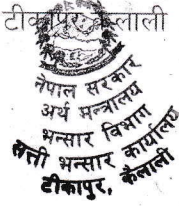 टीकापुर, कैलाली
नेपाल सरकार
अर्थ मन्त्रालय
भन्सार विभाग
सत्ती भन्सार कार्यालय
टीकापुर, कैलाली